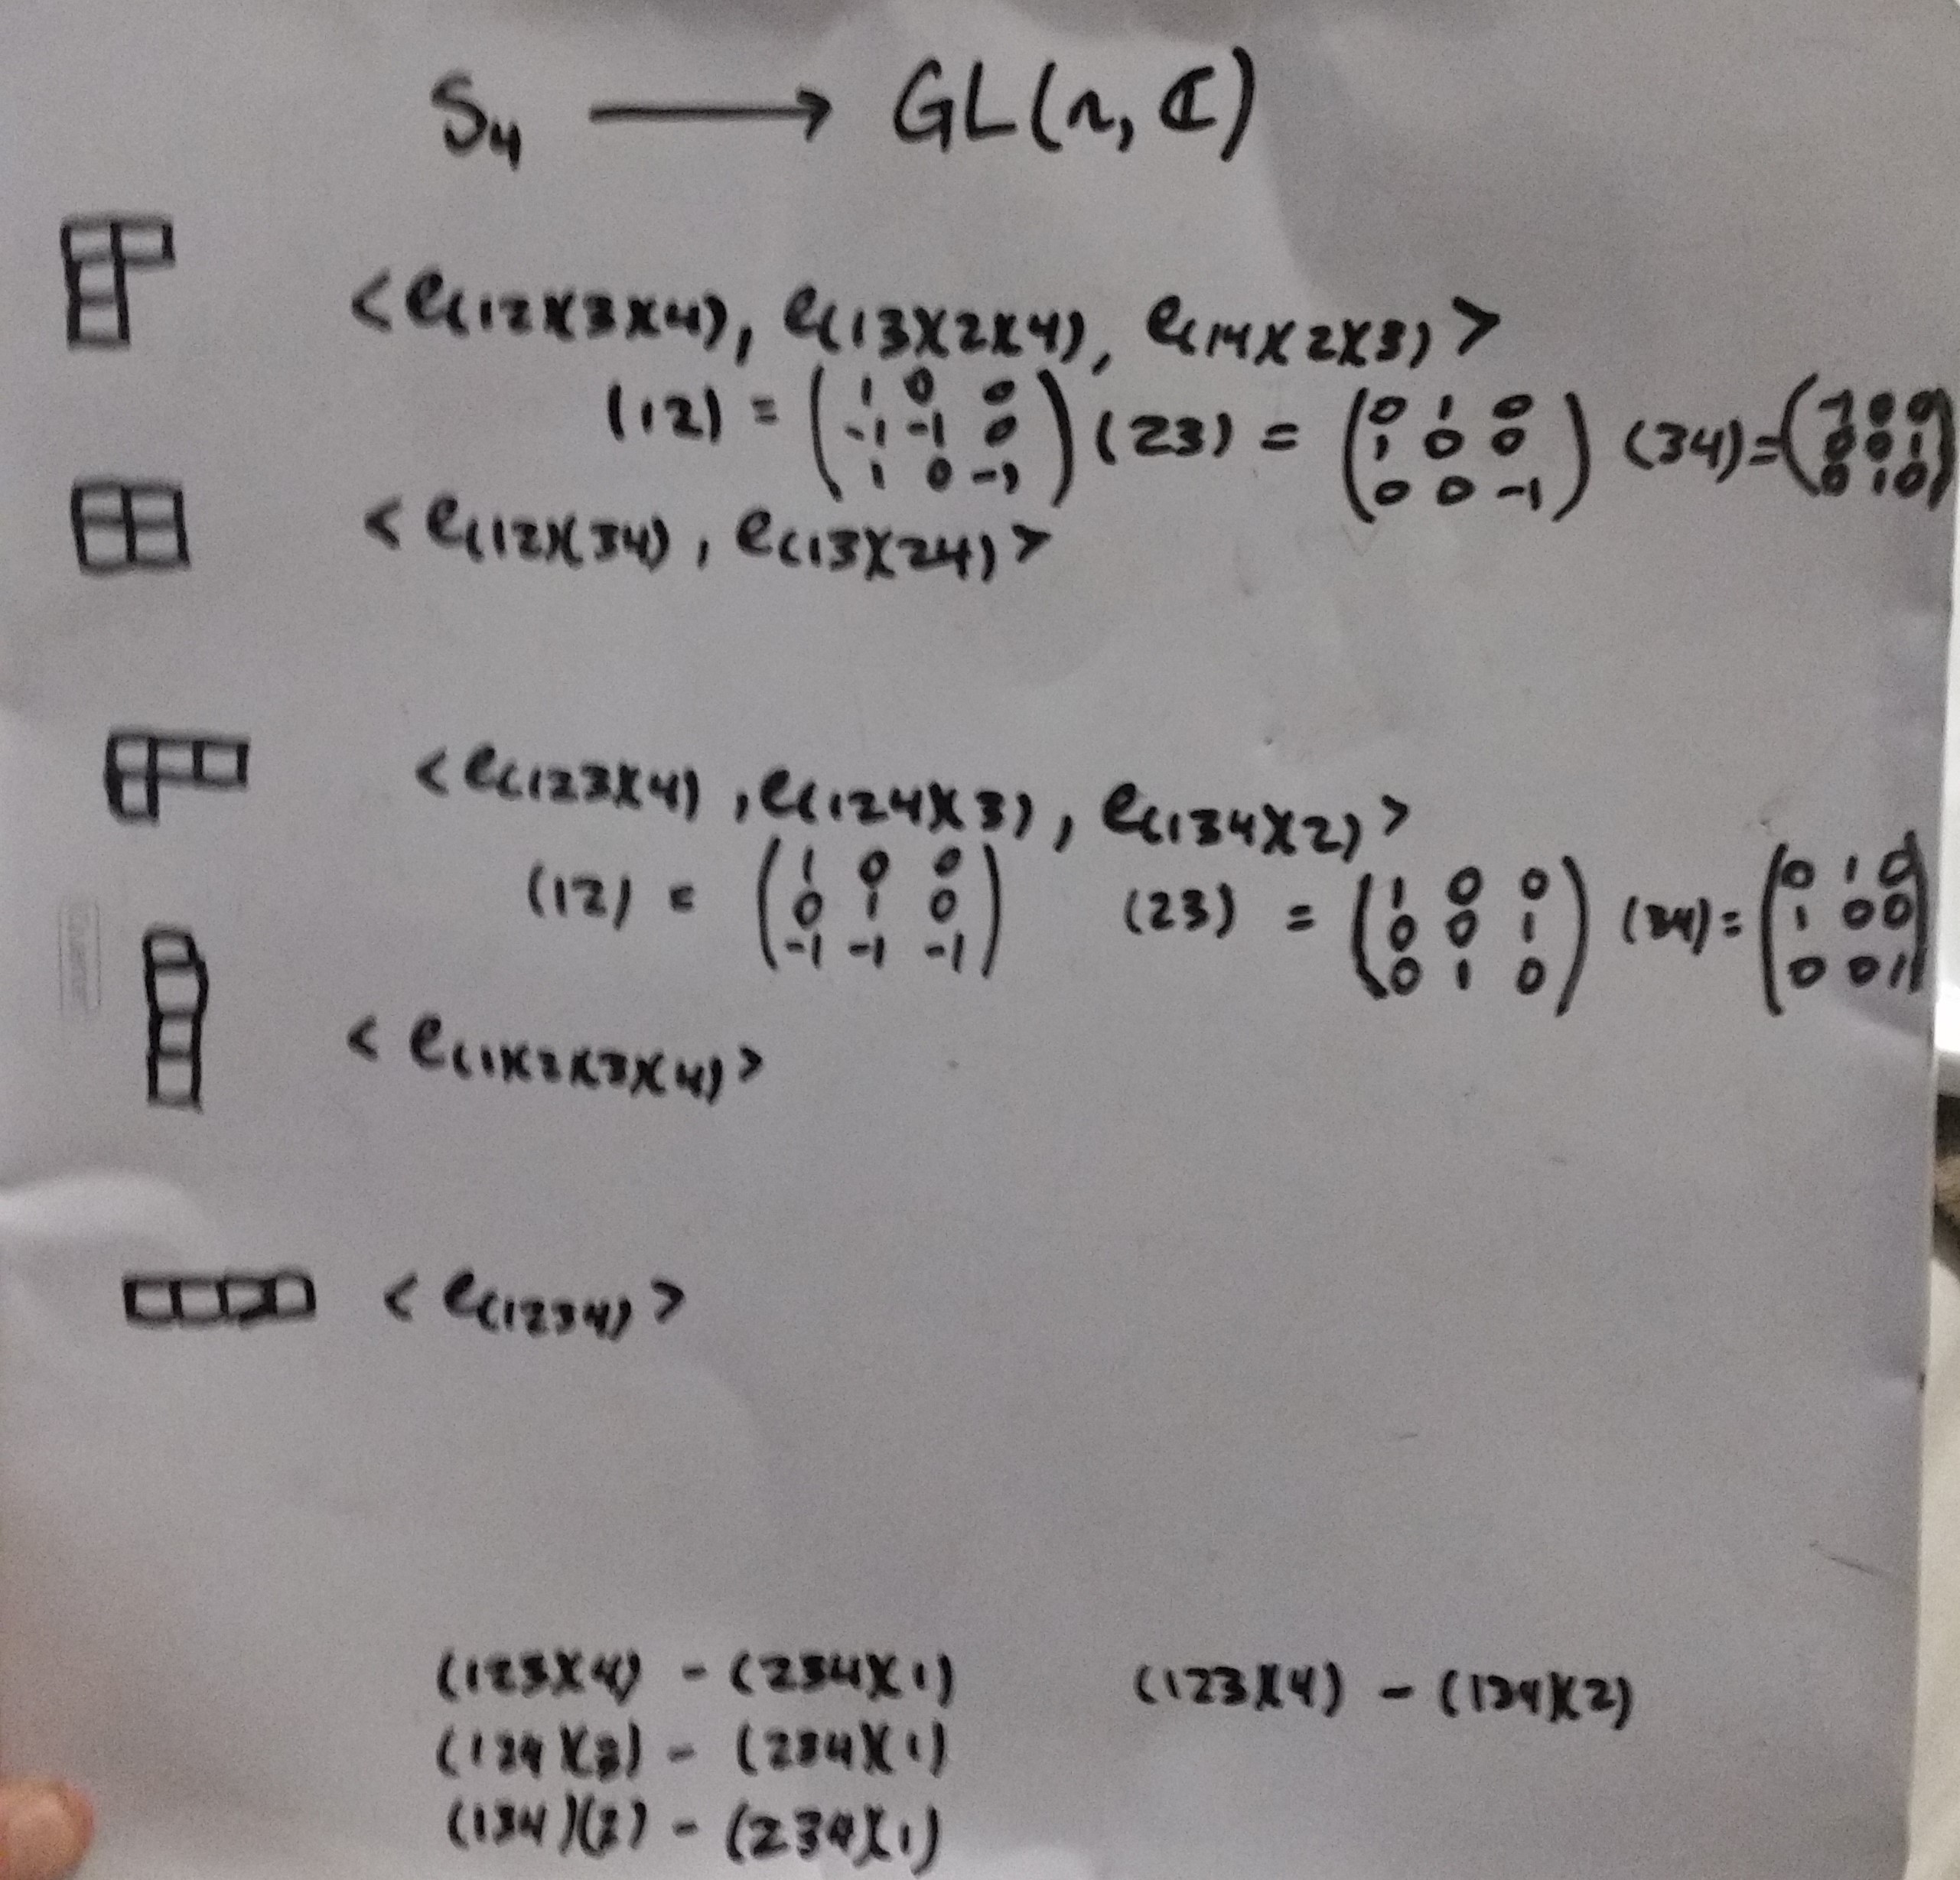 S₄ ⟶ GL(n, ℂ)
<e₍₁₂₎₍₃₎₍₄₎, e₍₁₃₎₍₂₎₍₄₎, e₍₁₄₎₍₂₎₍₃₎>
(12) = (1 0 0; -1 -1 0; 1 0 -1) (23) = (0 1 0; 1 0 0; 0 0 -1) (34) = (-1 0 0; 0 0 1; 0 1 0)
<e₍₁₂₎₍₃₄₎, e₍₁₃₎₍₂₄₎>
<e₍₁₂₃₎₍₄₎, e₍₁₂₄₎₍₃₎, e₍₁₃₄₎₍₂₎>
(12) = (1 0 0; 0 1 0; -1 -1 -1) (23) = (1 0 0; 0 0 1; 0 1 0) (34) = (0 1 0; 1 0 0; 0 0 1)
<e₍₁₎₍₂₎₍₃₎₍₄₎>
<e₍₁₂₃₄₎>
(123)(4) - (234)(1) (123)(4) - (134)(2)
(124)(3) - (234)(1)
(134)(2) - (234)(1)